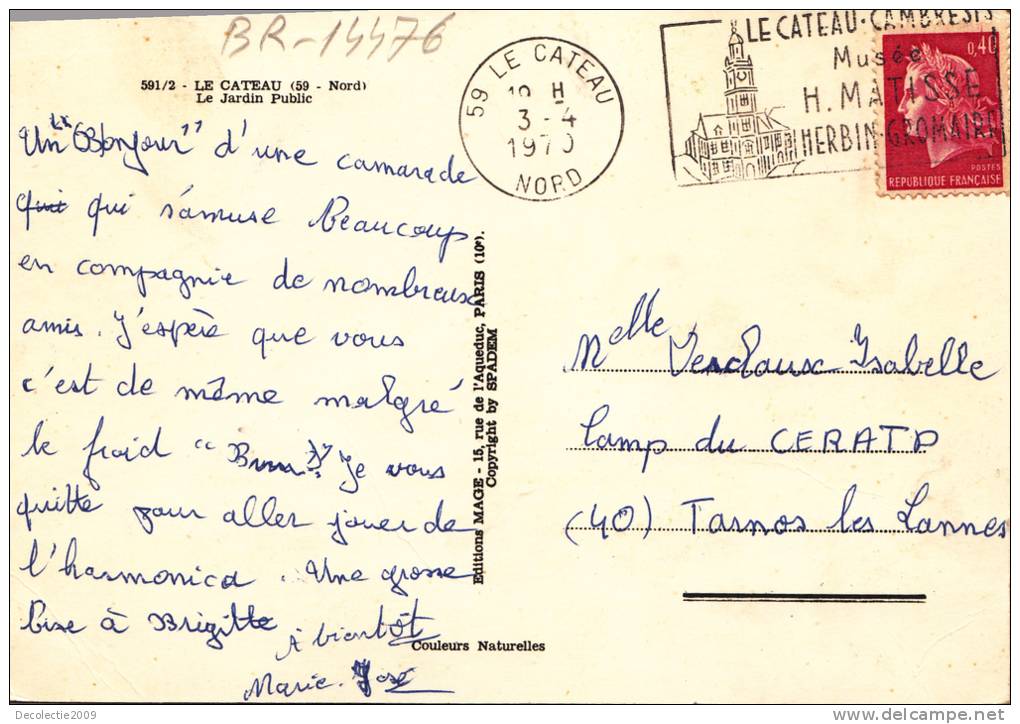 BR-14476
591/2 - LE CATEAU (59 - Nord)
Le Jardin Public
59 LE CATEAU
3-4
1970
NORD
LE CATEAU-CAMBRESIS
Musée
H. MATISSE
HERBIN-GROMAIRE
0,40
POSTES
REPUBLIQUE FRANÇAISE
Un "Bonjour" d'une camarade
qui qui s'amuse beaucoup
en compagnie de nombreux
amis. J'espère que vous
c'est de même malgré
le froid "Brrr" Je vous
quitte pour aller jouer de
l'harmonica. Une grosse
bise à Brigitte
A bientôt
Marie-José
Editions MAGE - 15, rue de l'Aqueduc, PARIS (10e).
Copyright by SPADEM
Couleurs Naturelles
Melle Isabelle
Camp du CERATP
(40) Tarnos les Lannes
Decolectie2009
delcampe.net